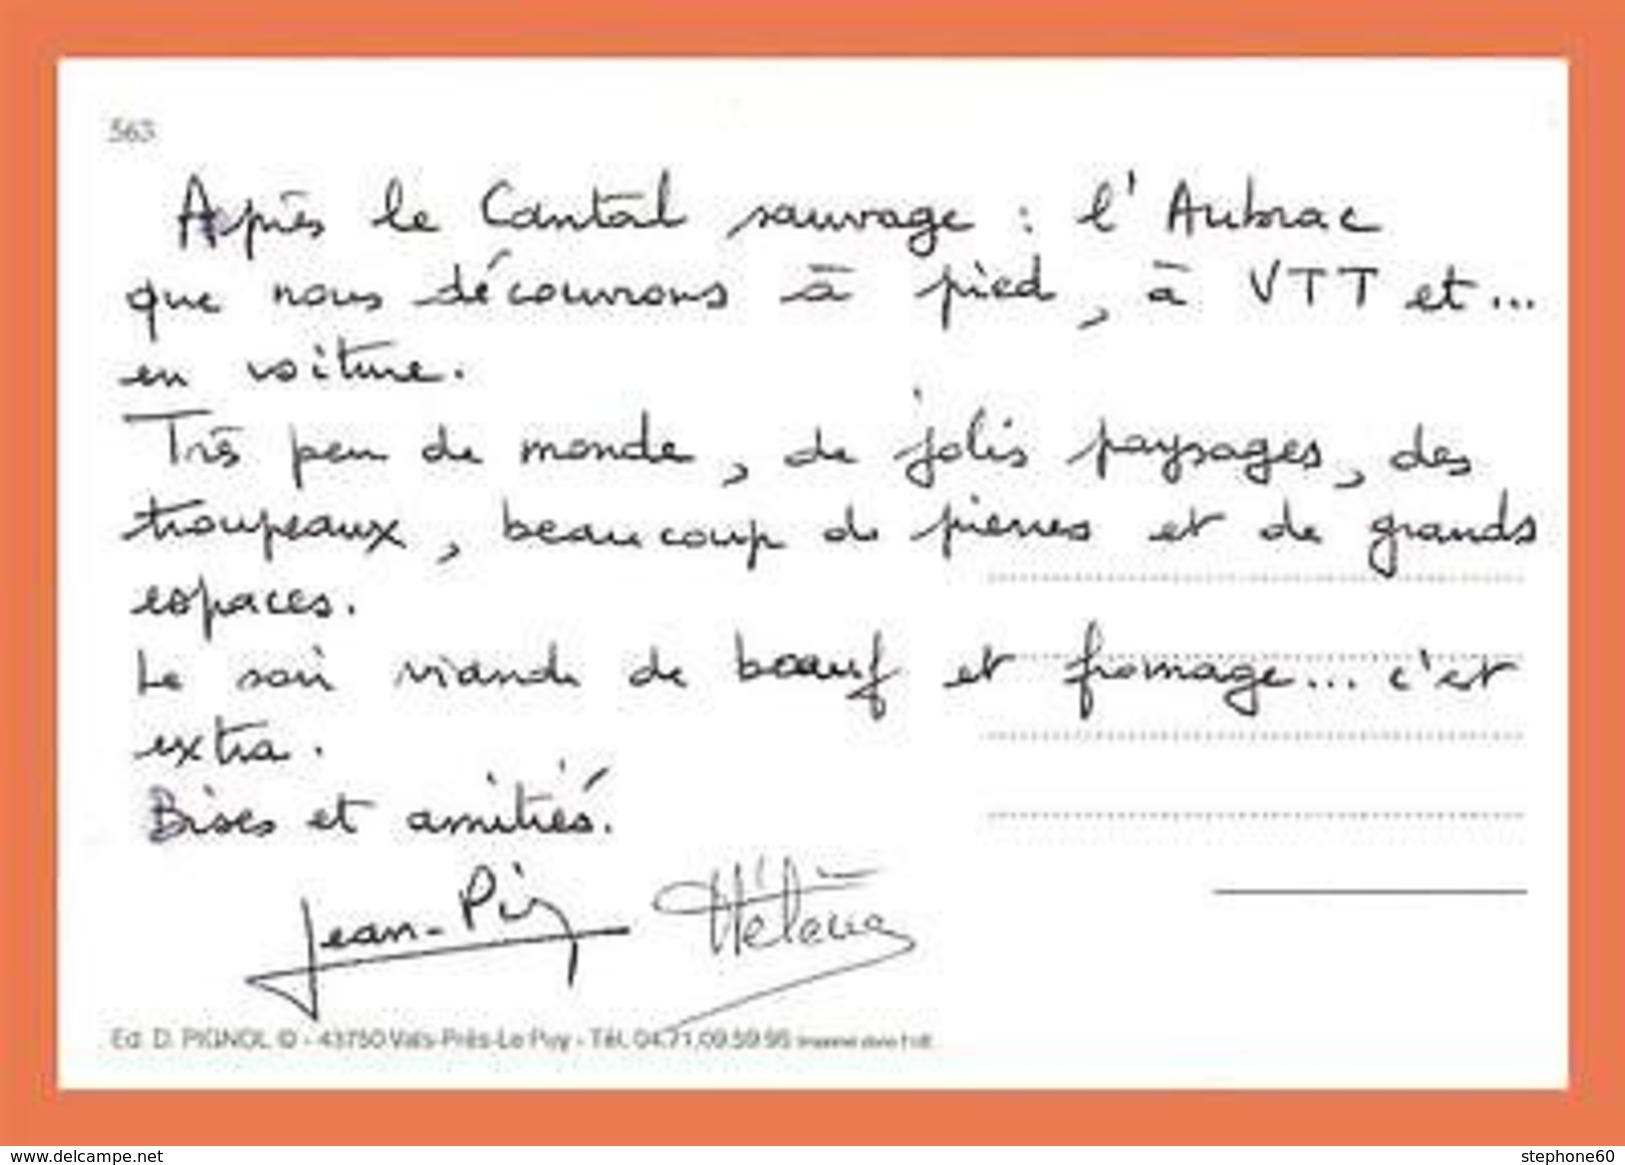 563
Après le Cantal sauvage : l'Aubrac
que nous découvrons à pied, à VTT et...
en voiture.
Très peu de monde, de jolis paysages, des
troupeaux, beaucoup de pierres et de grands
espaces.
Le soir viande de boeuf et fromage... c'est
extra.
Bises et amitiés.
Jean-
Hélène
Ed. D. PIGNOL © - 43750 Vals-Près-Le Puy - Tél. 04.71.09.59.95
www.delcampe.net
stephone60